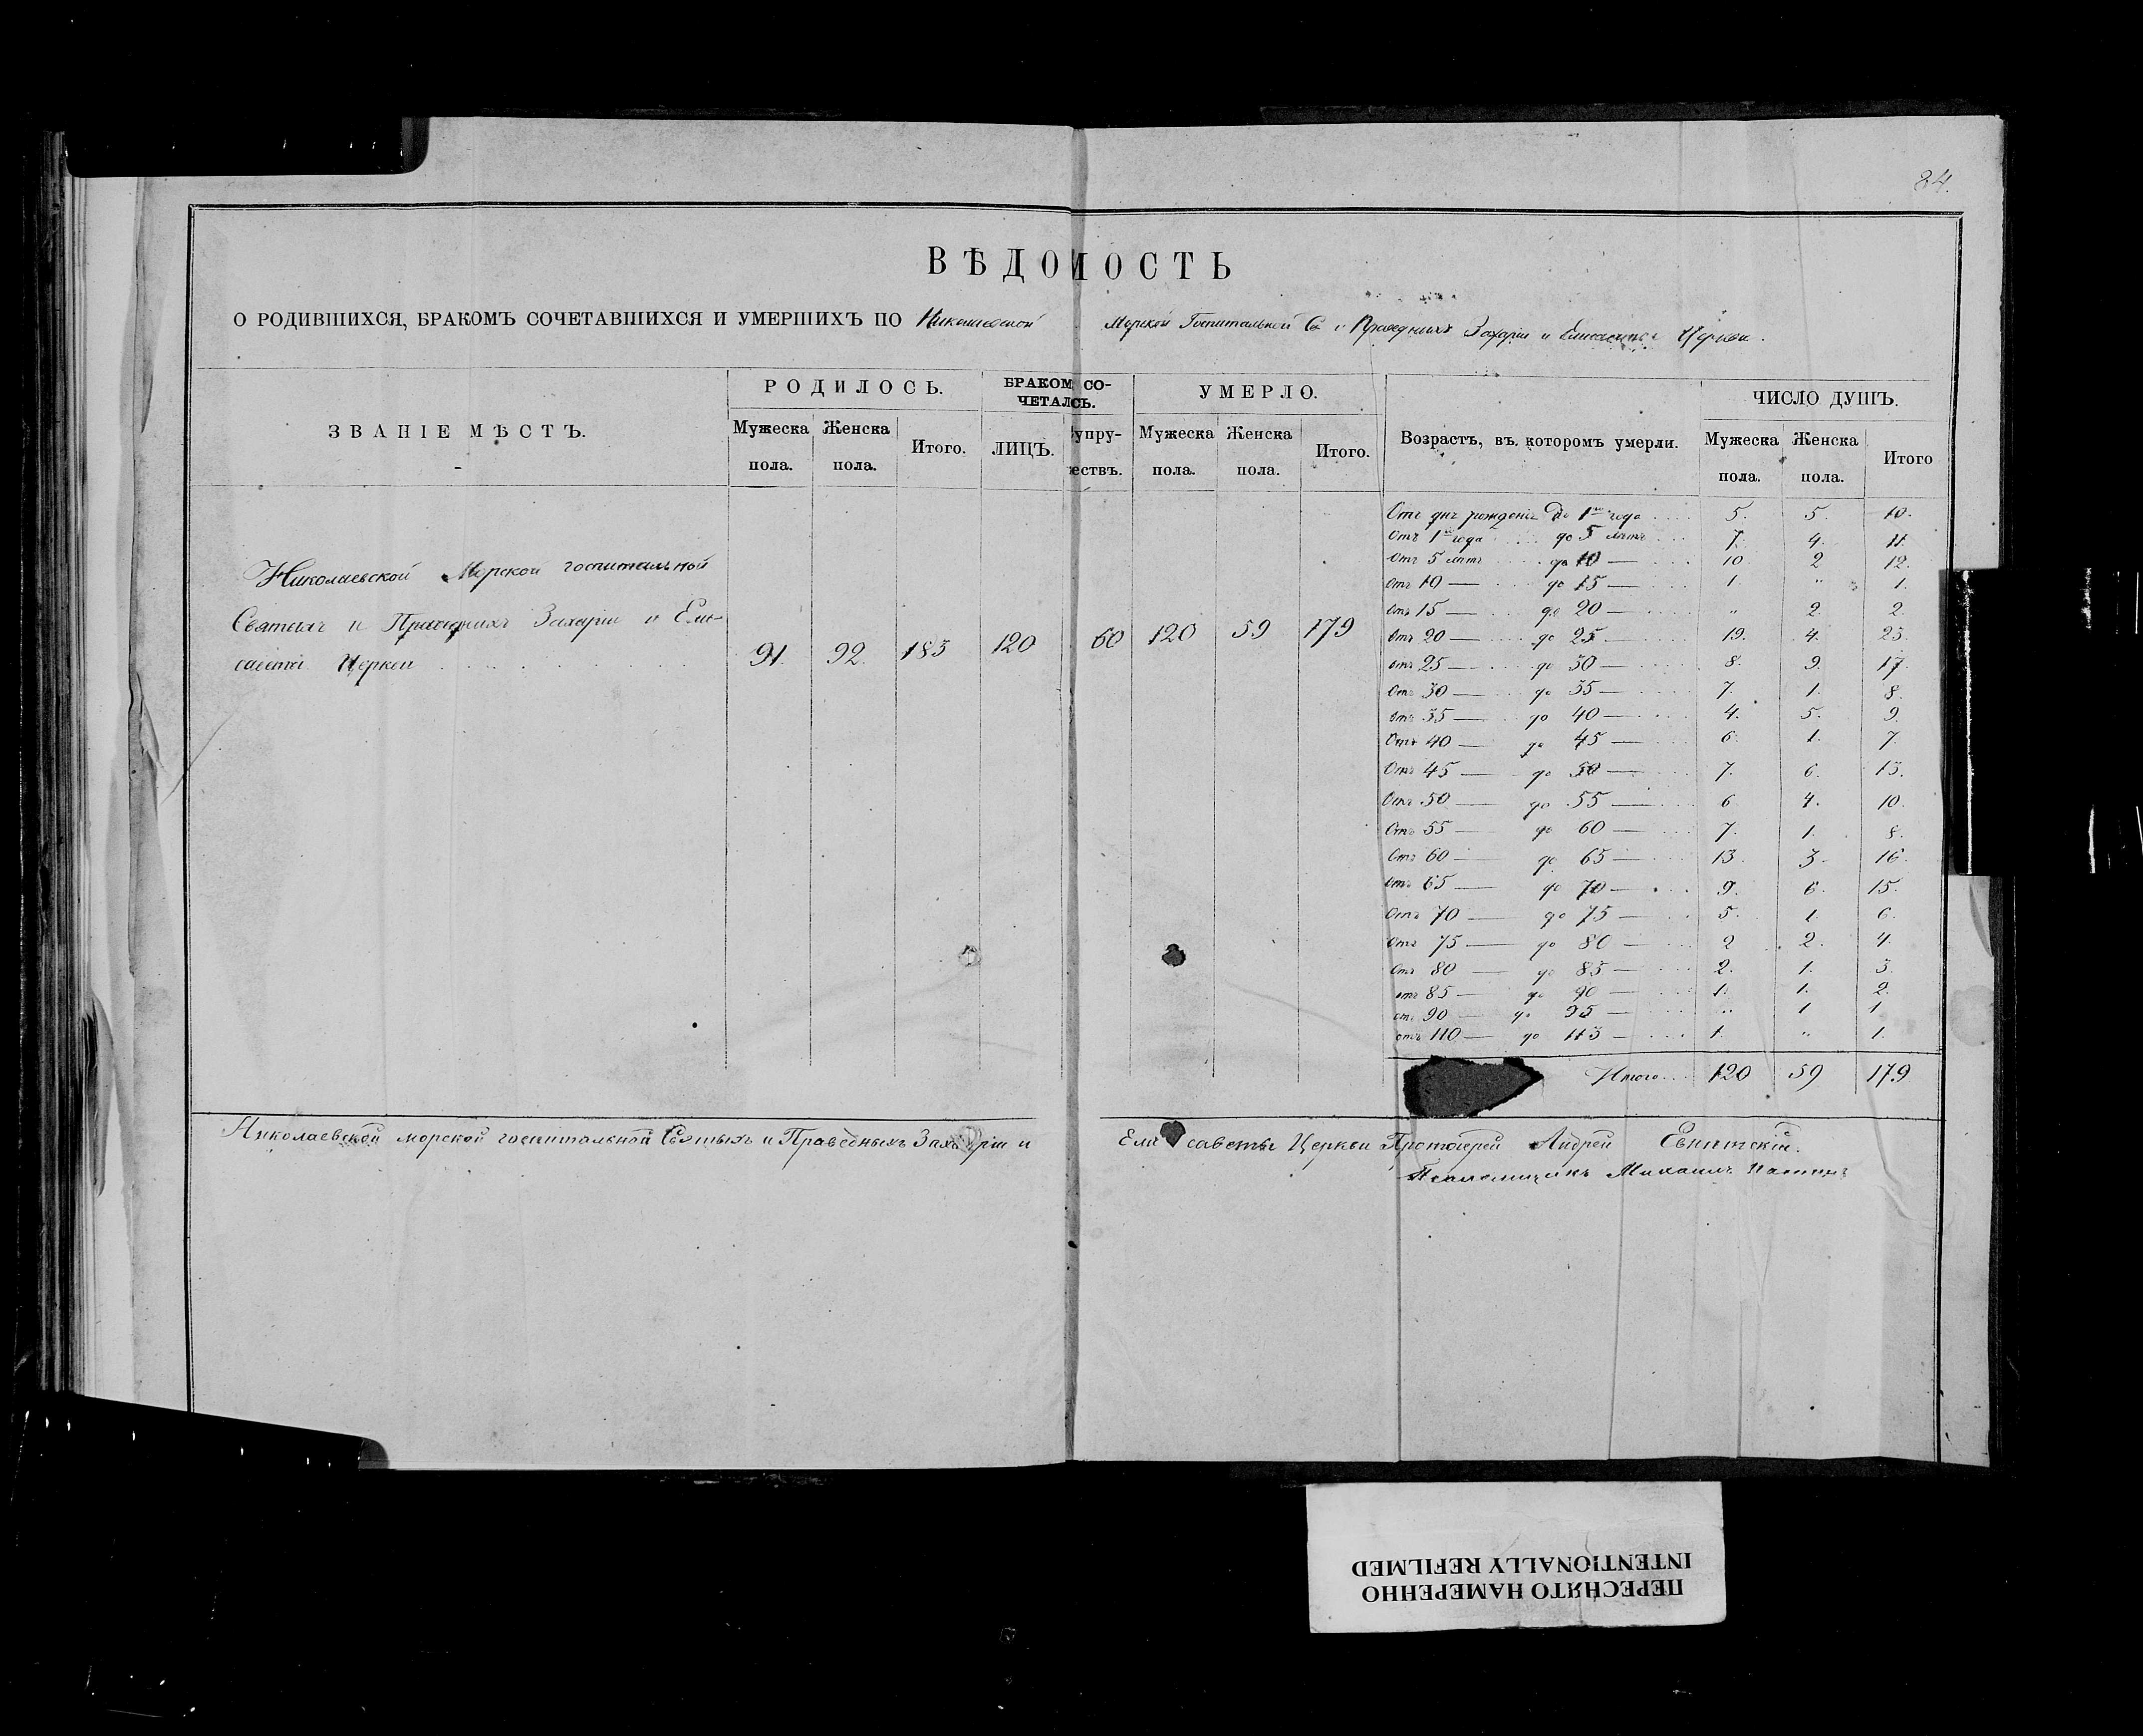 84.
ВѢДОМОСТЬ
О РОДИВШИХСЯ, БРАКОМЪ СОЧЕТАВШИХСЯ И УМЕРШИХЪ ПО Николаевской Морской Госпитальной Св. и Праведныхъ Захарiи и Елисаветы Церкви.
ЗВАНІЕ МѢСТЪ.
РОДИЛОСЬ.
Мужеска пола.
Женска пола.
Итого.
БРАКОМ СО-
ЧЕТАЛСЬ.
ЛИЦЪ.
упру-
ествъ.
УМЕРЛО.
Мужеска пола.
Женска пола.
Итого.
Возрастъ, въ которомъ умерли.
ЧИСЛО ДУШЪ.
Мужеска пола.
Женска пола.
Итого
Николаевской Морской госпитальной
Святыхъ и Праведныхъ Захарiи и Ели-
саветы Церкви
91. 92. 183 120 60 120 59 179
Отъ дня рожденiя до 1го года 5. 5. 10.
Отъ 1го года до 5 лѣтъ 7. 4. 11.
Отъ 5 лѣтъ до 10 — 10 2 12.
Отъ 10 — до 15 — 1. " 1.
Отъ 15 — до 20 — " 2 2.
Отъ 20 — до 25 — 19. 4. 23.
отъ 25 — до 30 — 8. 9. 17.
Отъ 30 — до 35 — 7. 1. 8.
Отъ 35 — до 40 — 4. 5. 9.
Отъ 40 — до 45 — 6. 1. 7.
Отъ 45 — до 50 — 7. 6. 13.
Отъ 50 — до 55 — 6 4. 10.
Отъ 55 — до 60 — 7. 1. 8.
Отъ 60 — до 65 — 13. 3. 16.
Отъ 65 — до 70 — 9. 6. 15.
Отъ 70 — до 75 — 5. 1. 6.
Отъ 75 — до 80 — 2 2. 4.
Отъ 80 — до 85 — 2. 1. 3.
отъ 85 — до 90 — 1. 1. 2.
отъ 90 — до 95 — " 1 1
отъ 110 — до 113 — 1. " 1.
Итого 120 59 179
Николаевской морской госпитальной Святыхъ и Праведныхъ Захарiи и Елисаветы Церкви Протоiерей Андрей
Псаломщикъ Михаилъ
ПЕРЕСНЯТО НАМЕРЕННО
INTENTIONALLY REFILMED